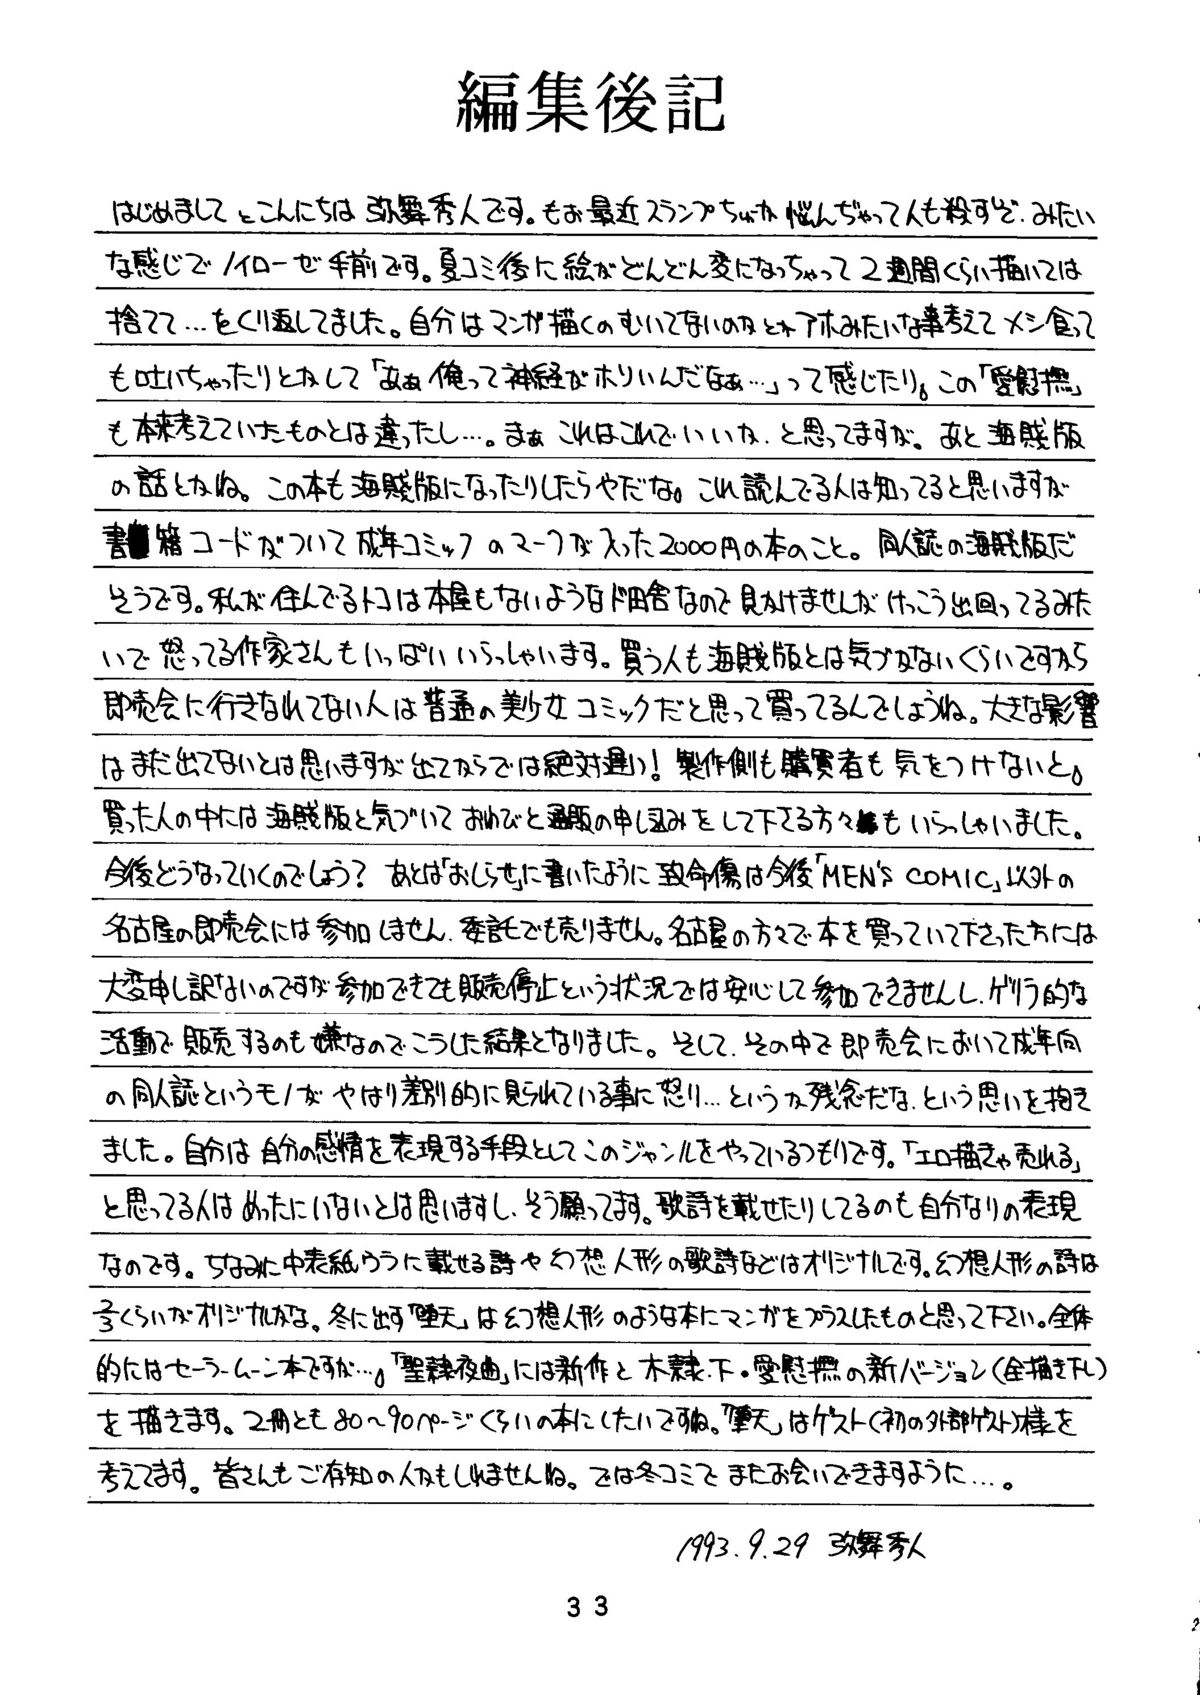 編集後記
はじめまして とこんにちは 弥舞秀人です。もお最近スランプちゅーか 悩んぢゃって人も殺すぞ、みたい
な感じでノイローゼ手前です。夏コミ後に絵がどんどん変になっちゃって2週間くらい描いては
捨てて…をくり返してました。自分はマンガ描くのむいてないのかとかアホみたいな事考えてメシ食って
も吐いちゃったりとかして「あぁ俺って神経がホソいんだなぁ…」って感じたり。この「愛慰撫」
も本来考えていたものとは違ったし…。まぁこれはこれでいいか、と思ってますが。あと海賊版
の話とかね。この本も海賊版になったりしたらやだな。これ読んでる人は知ってると思いますが
書籍コードがついて成年コミックのマークが入った2000円の本のこと。同人誌の海賊版だ
そうです。私が住んでるトコは本屋もないようなド田舎なので見かけませんがけっこう出回ってるみた
いで怒ってる作家さんもいっぱいいらっしゃいます。買う人も海賊版とは気づかないくらいですから
即売会に行きなれてない人は普通の美少女コミックだと思って買ってるんでしょうね。大きな影響
はまだ出てないとは思いますが出てからでは絶対遅い!製作側も購買者も気をつけないと。
買った人の中には海賊版と気づいておわびと通販の申し込みをして下さる方々もいらっしゃいました。
今後どうなっていくのでしょう?あとは「おしらせ」に書いたように致命傷は今後「MEN'S COMIC」以外の
名古屋の即売会には参加しません、委託でも売りません。名古屋の方々で本を買っていて下さった方には
大変申し訳ないのですが参加できても販売停止という状況では安心して参加できませんし、ゲリラ的な
活動で販売するのも嫌なのでこうした結果となりました。そして、その中で即売会において成年向
の同人誌というモノがやはり差別的に見られている事に怒り…というか残念だな、という思いを抱き
ました。自分は自分の感情を表現する手段としてこのジャンルをやっているつもりです。「エロ描きゃ売れる」
と思ってる人はめったにいないとは思いますし、そう願ってます。歌詩を載せたりしてるのも自分なりの表現
なのです。ちなみに中表紙ウラに載せる詩や幻想人形の歌詩などはオリジナルです。幻想人形の詩は
2/3くらいがオリジナルかな。冬に出す「堕天」は幻想人形のような本にマンガをプラスしたものと思って下さい。全体
的にはセーラームーン本ですが…。「聖隷夜曲」には新作と木隷、下・愛慰撫の新バージョン(全描き下し)
を描きます。2冊とも80~90ページくらいの本にしたいですね。「堕天」はゲスト(初の外部ゲスト)様を
考えてます。皆さんもご存知の人かもしれませんね。では冬コミでまたお会いできますように…。
1993.9.29 弥舞秀人
33